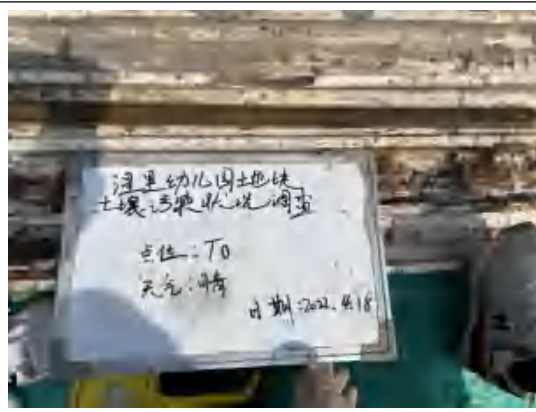 里幼儿园土地块
土壤污染状况调查
点位:T0
天气:晴
日期:2022.4.18